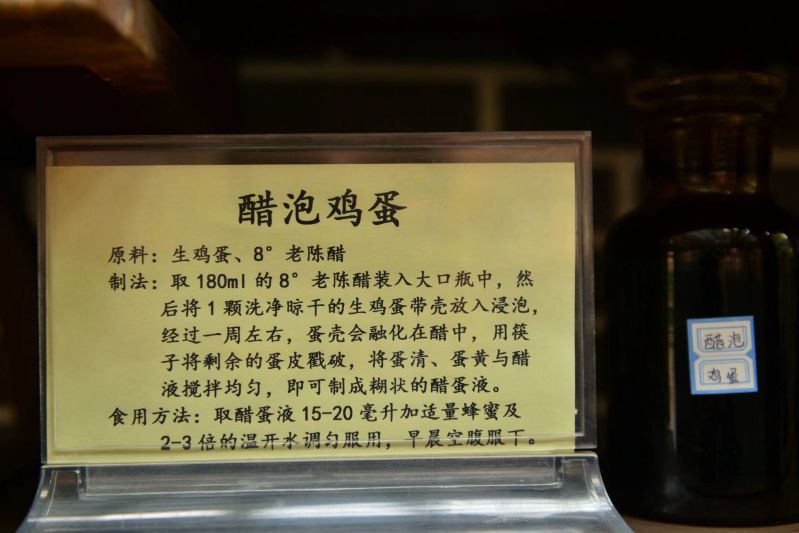 醋泡鸡蛋
原料：生鸡蛋、8°老陈醋
制法：取180ml的8°老陈醋装入大口瓶中，然
后将1颗洗净晾干的生鸡蛋带壳放入浸泡，
经过一周左右，蛋壳会融化在醋中，用筷
子将剩余的蛋皮戳破，将蛋清、蛋黄与醋
液搅拌均匀，即可制成糊状的醋蛋液。
食用方法：取醋蛋液15-20毫升加适量蜂蜜及
2-3倍的温开水调匀服用，早晨空腹服下。
醋泡
鸡蛋